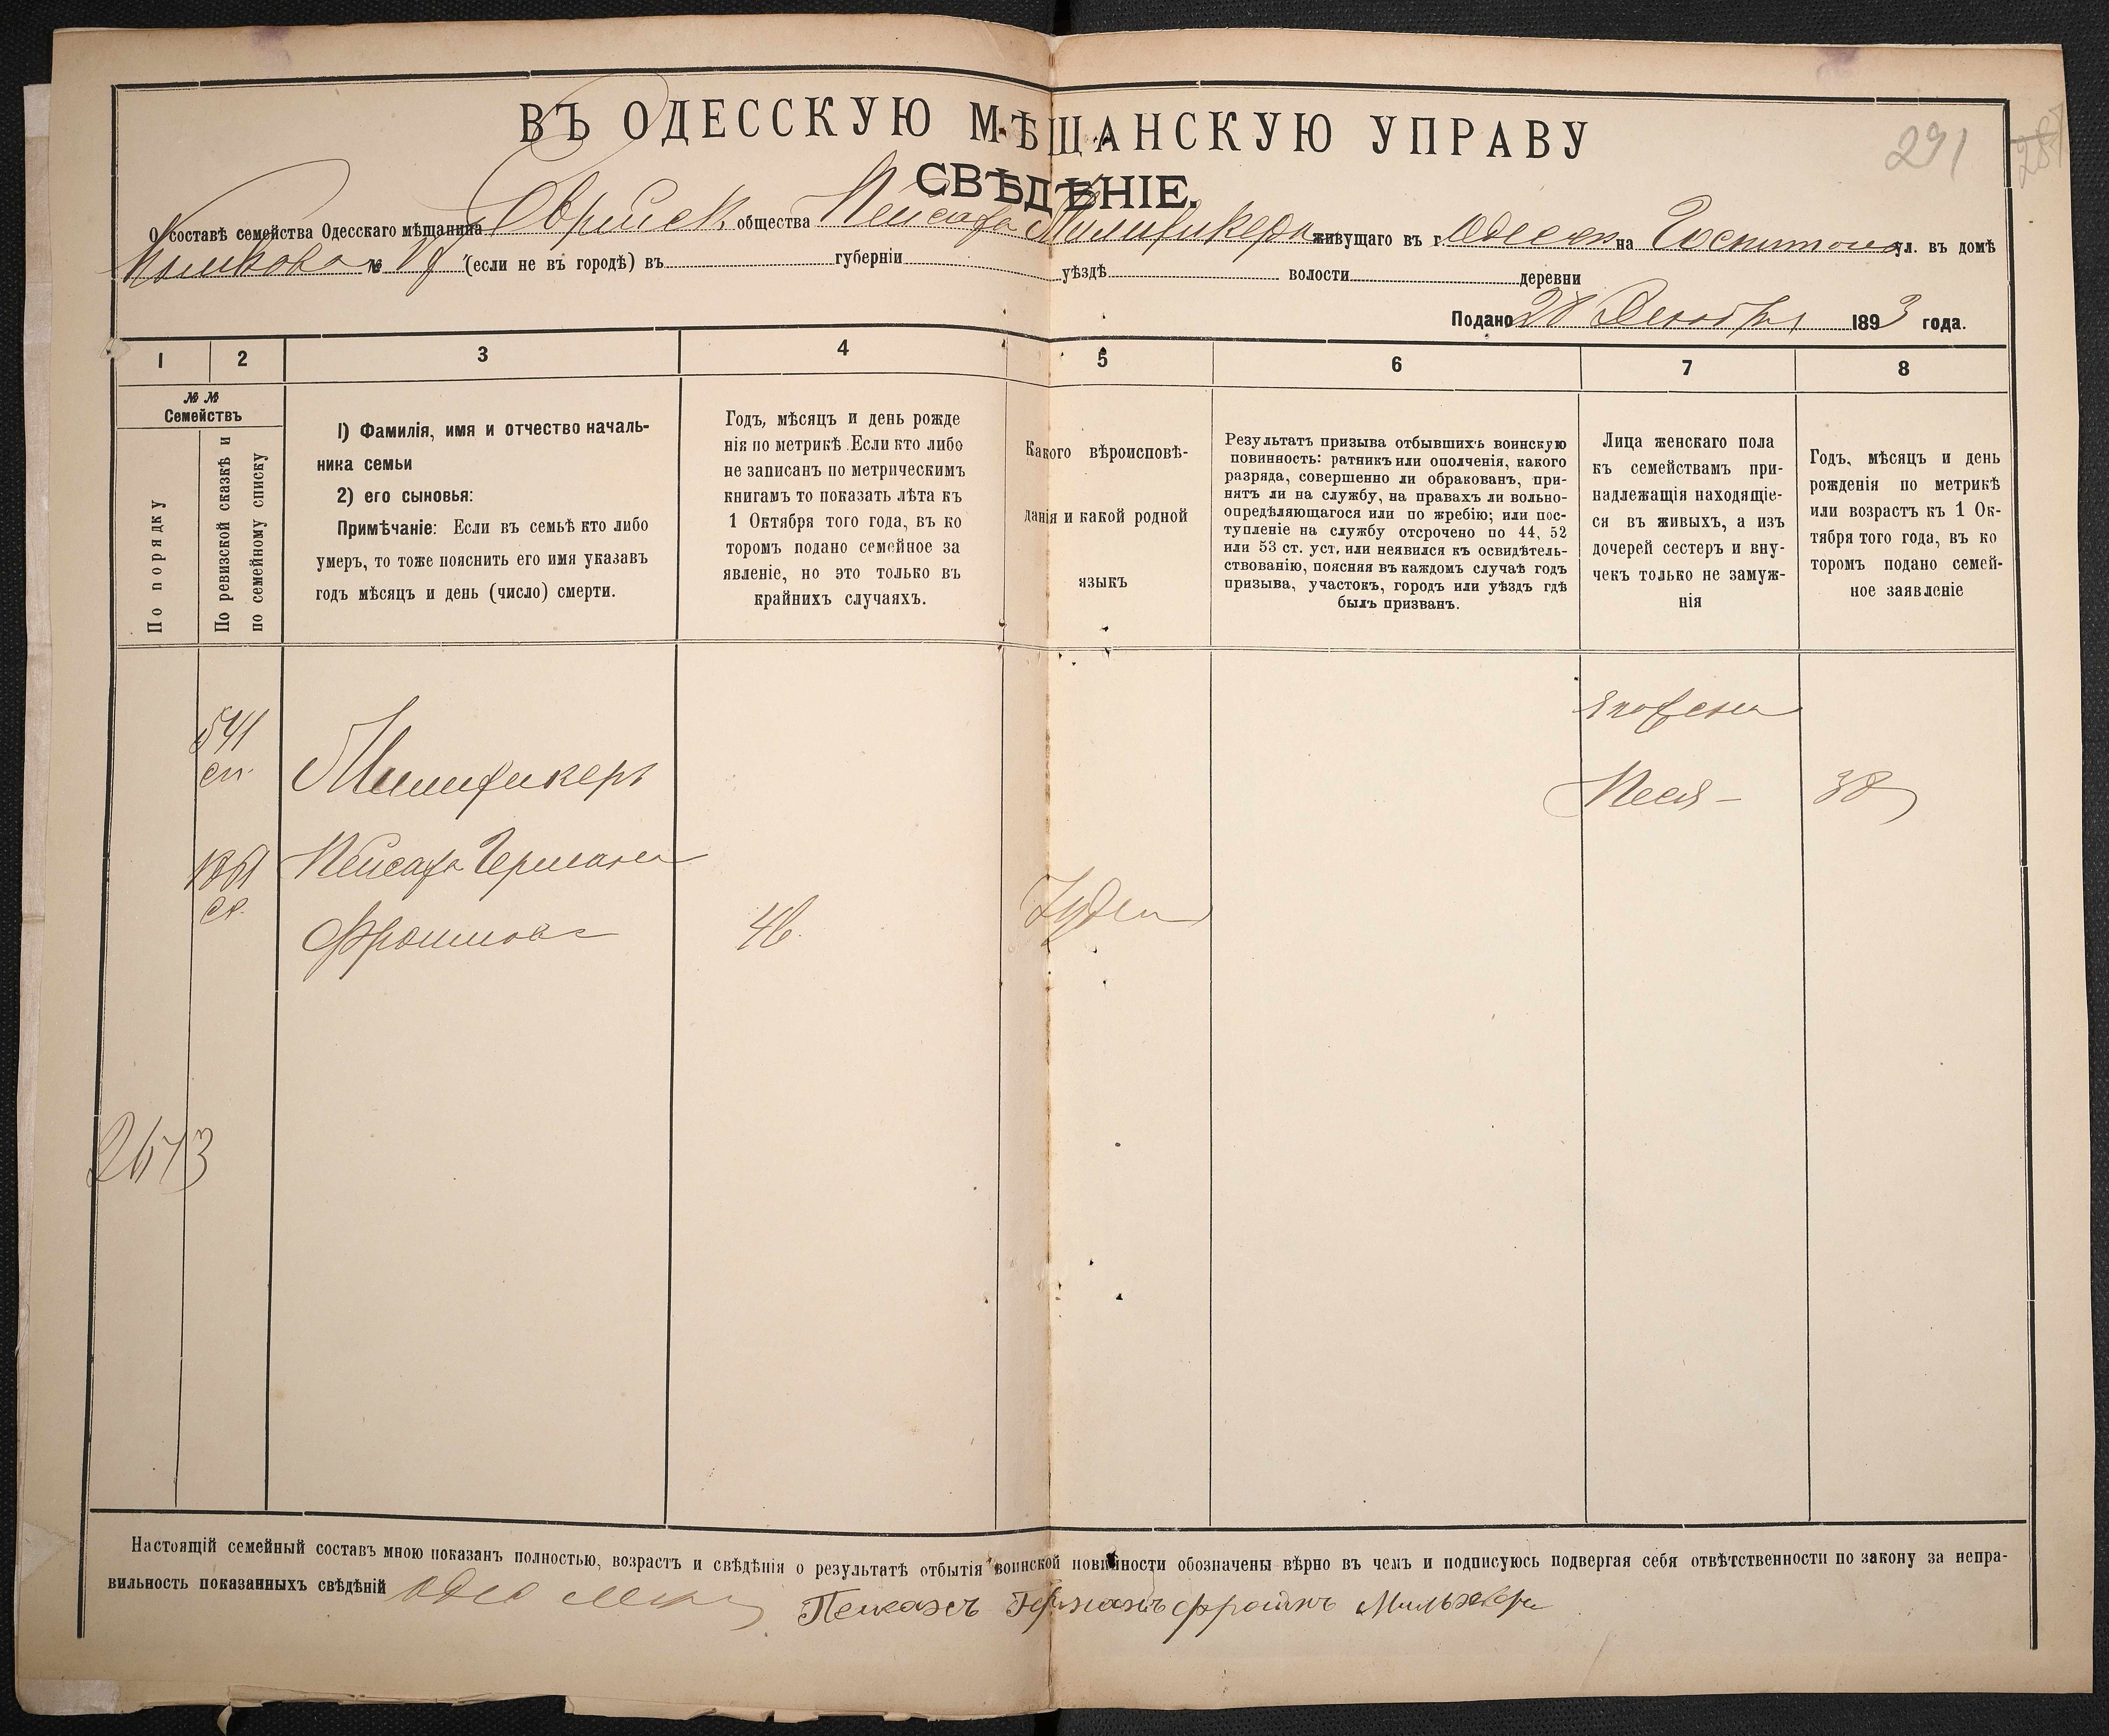 ВЪ ОДЕССКУЮ МѢЩАНСКУЮ УПРАВУ
291
СВѢДѢНІЕ.
О составѣ семейства Одесскаго мѣщанина Еврейск. общества Пейсаха живущаго въ г. Одессѣ на ул. въ домѣ
№ (если не въ городѣ) въ губерніи уѣздѣ волости деревни
Подано 28 Декабря 1893 года.
1 2 3 4 5 6 7 8
№ №
Семействъ
По порядку
По ревизской сказкѣ и
по семейному списку
1) Фамилія, имя и отчество началь-
ника семьи
2) его сыновья:
Примѣчаніе: Если въ семьѣ кто либо
умеръ, то тоже пояснить его имя указавъ
годъ мѣсяцъ и день (число) смерти.
Годъ, мѣсяцъ и день рожде
нія по метрикѣ. Если кто либо
не записанъ по метрическимъ
книгамъ то показать лѣта къ
1 Октября того года, въ ко
торомъ подано семейное за
явленіе, но это только въ
крайнихъ случаяхъ.
Какого вѣроисповѣ-
данія и какой родной
языкъ
Результатъ призыва отбывшихъ воинскую
повинность: ратникъ или ополченія, какого
разряда, совершенно ли обракованъ, при-
нятъ ли на службу, на правахъ ли вольно-
опредѣляющагося или по жребію; или пос-
тупленіе на службу отсрочено по 44, 52
или 53 ст. уст, или неявился къ освидѣтель-
ствованію, поясняя въ каждомъ случаѣ годъ
призыва, участокъ, городъ или уѣздъ гдѣ
былъ призванъ.
Лица женскаго пола
къ семействамъ при-
надлежащія находящіе-
ся въ живыхъ, а изъ
дочерей сестеръ и вну-
чекъ только не замуж-
нія
Годъ, мѣсяцъ и день
рожденія по метрикѣ
или возрастъ къ 1 Ок-
тября того года, въ ко
торомъ подано семей-
ное заявленіе
541
сп.
Милификеръ
его жена
Песя - 38
Пейсахъ Германъ
46.
Іудей
2673
Настоящій семейный составъ мною показанъ полностью, возрастъ и свѣдѣнія о результатѣ отбытія воинской повинности обозначены вѣрно въ чемъ и подписуюсь подвергая себя отвѣтственности по закону за непра-
вильность показанныхъ свѣдѣній